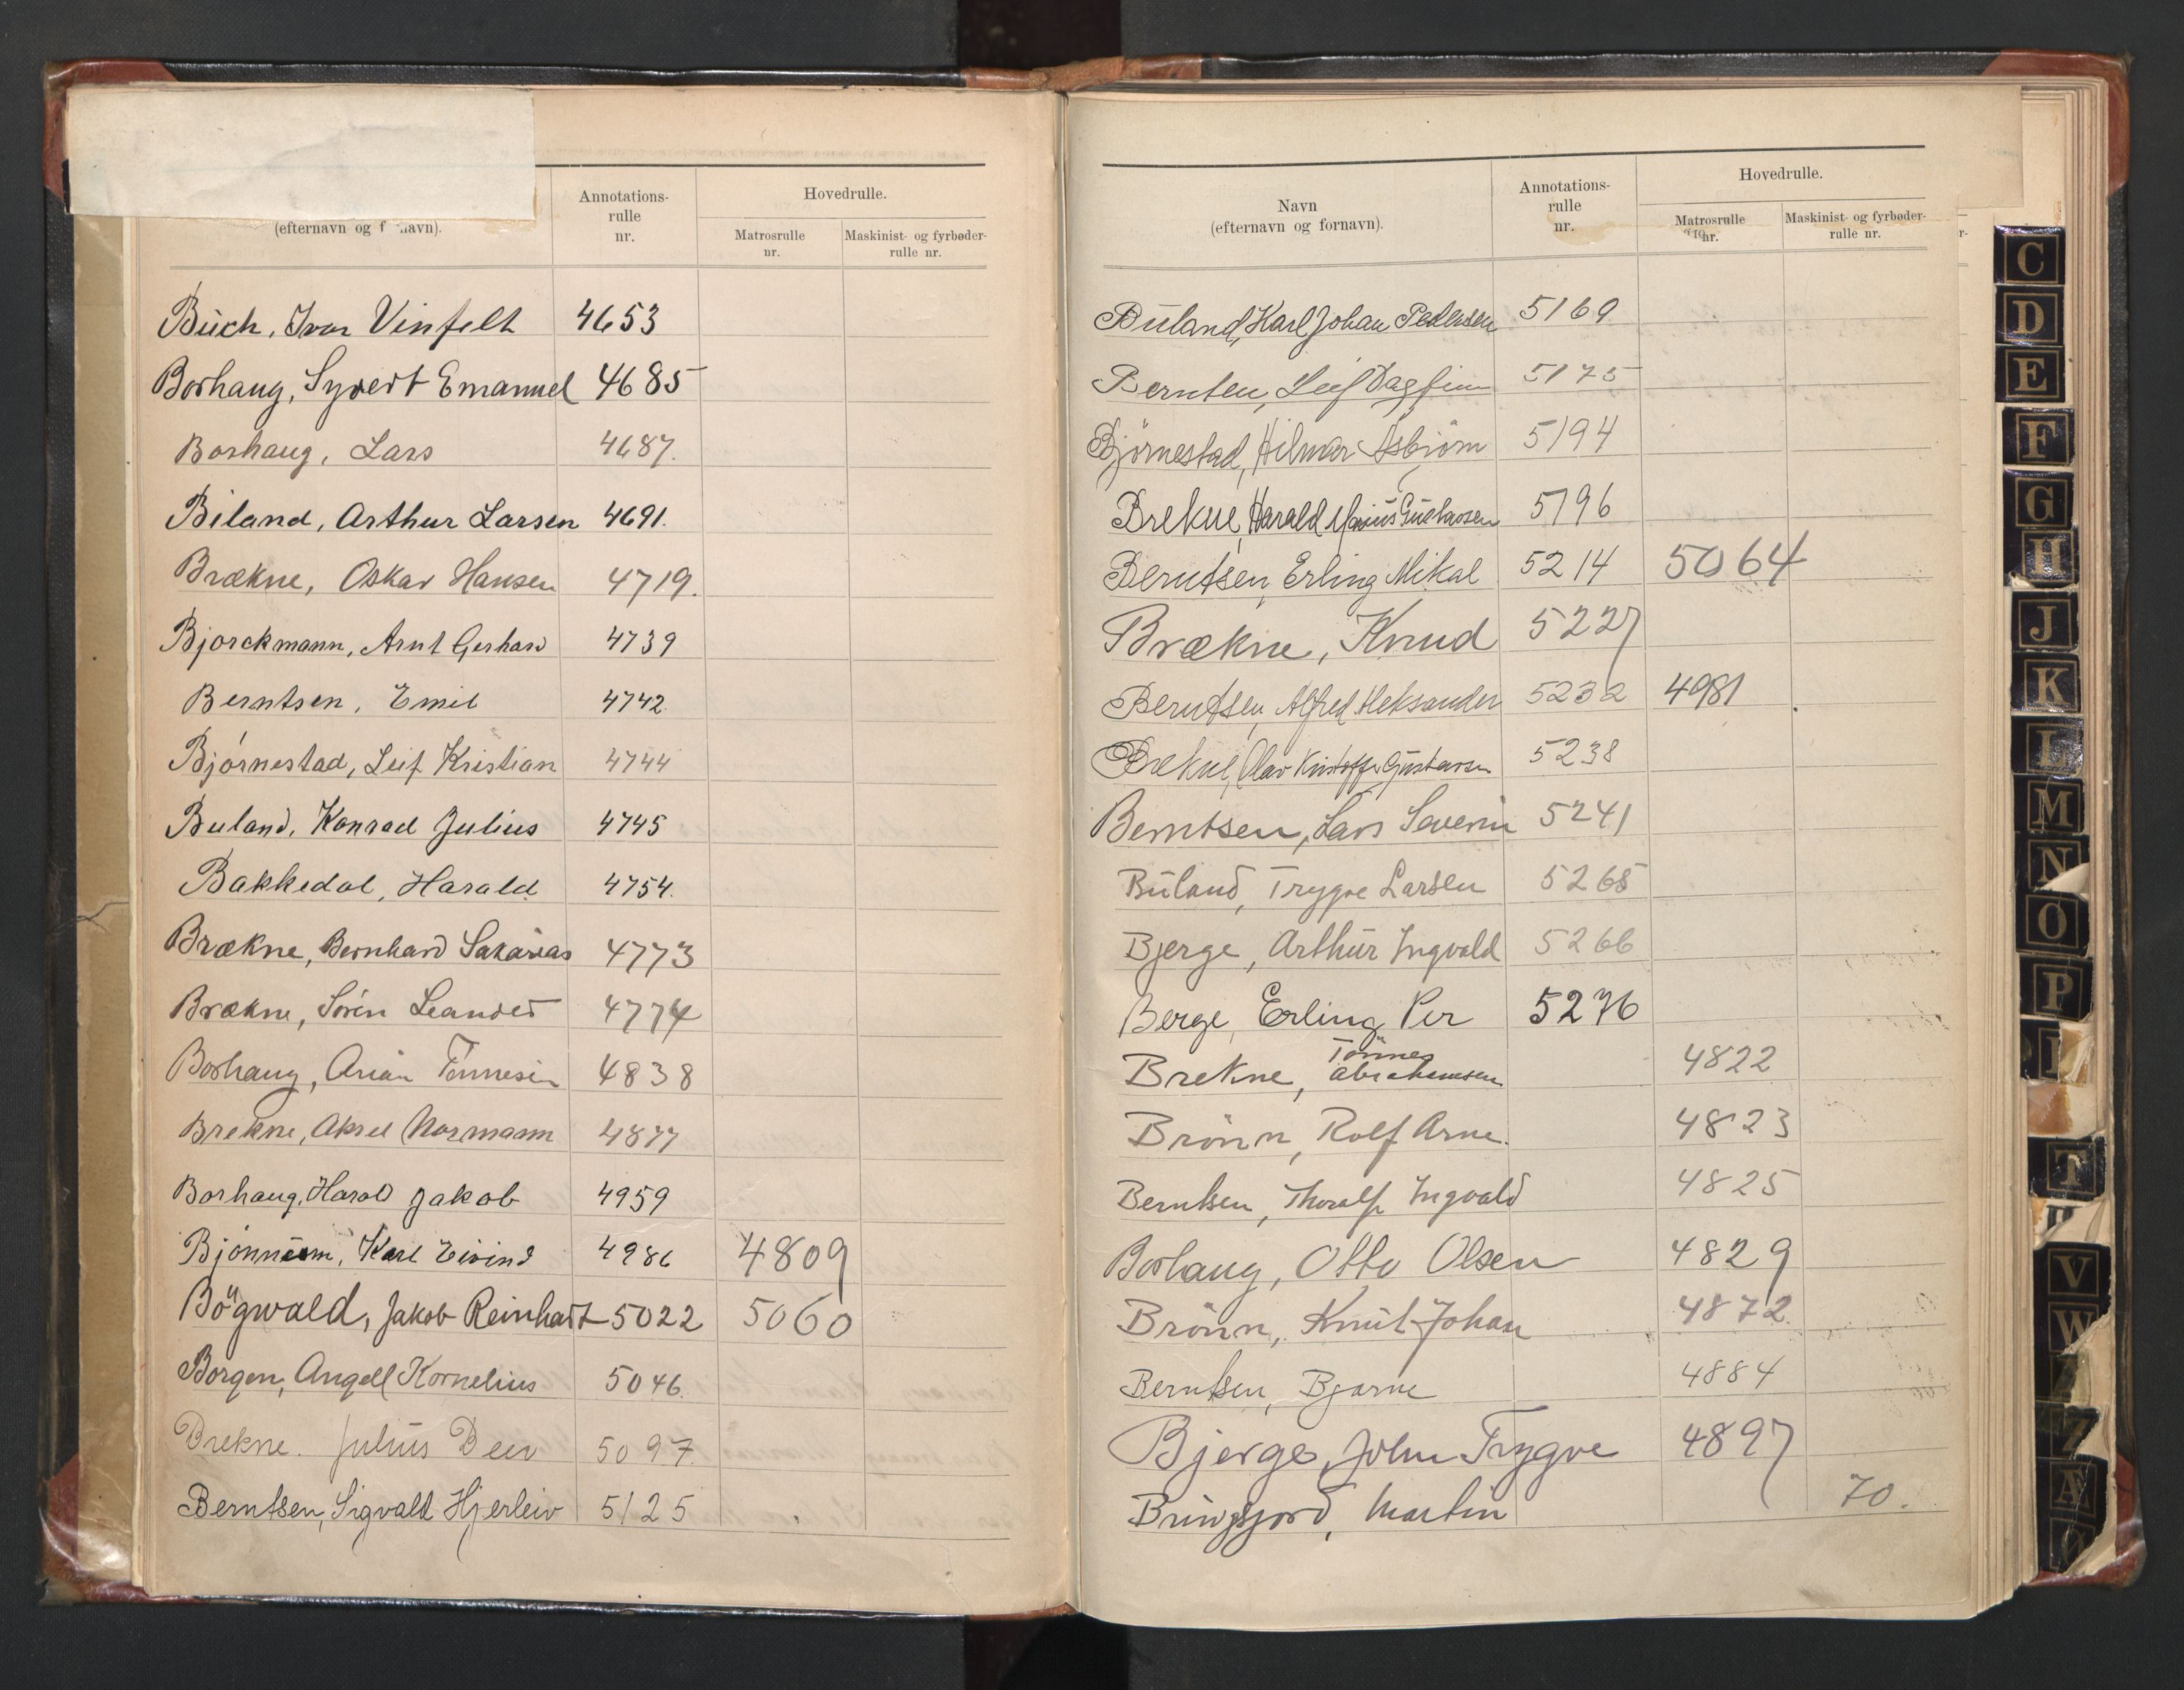 (efternavn og f navn).
Annotations-
rulle
nr.
Hovedrulle.
Matrosrulle
nr.
Maskinist- og fyrbøder-
rulle nr.
Büch, Ivar Vinfelt 4653
Borhaug, Syvert Emanuel 4685
Borhaug, Lars 4687.
Biland, Arthur Larsen 4691.
Brækne, Oskar Hansen 4719.
Bjorckmann, Arnt Gerhard 4739
Berntsen, Emil 4742
Bjørnestad, Leif Kristian 4744
Buland, Konrad Julius 4745
Bakkedal, Harald 4754.
Brækne, Bernhard Sakarias 4773
Brækne, Sørén Leander 4774
Borhaug, Arian Tønnesen 4838
Brekne, Aksel Normann 4877
Borhaug, Harald Jakob 4959
Bjønn, Karl Eivind 4986 4809
Bögwald, Jakob Reinhart 5022 5060
Borgen, Angell Kornelius 5046.
Brekne. Julius 5097.
Berntsen, Sigvald Hjerleiv 5125
Navn
(efternavn og fornavn).
Annotations-
rulle
nr.
Hovedrulle.
Matrosrulle
nr.
Maskinist- og fyrbøder-
rulle nr.
Büland, Karl Johan Pedersen 5169
Bernten, Leif Dagfinn 5175
Björnestad, Hilmar Asbiörn 5194
Brekne, Harald Marius Gustavsen 5196
Berntsen, Erling Mikal 5214 5064
Brækne, Knud 5227
Berntsen, Alfred Aleksander 5232 4981
Brekne, Olav Kristoffer Gustavsen 5238
Berntsen, Lars Severin 5241
Büland, Trygve Larsen 5265
Bjerge, Arthür Ingvald 5266
Berge, Erling Per 5276
Brekne, Tönnes
Abrahamsen 4822
Brönn, Rolf Arne. 4823
Berntsen, Thoralf Ingvald 4825
Borhaug, Otto Olsen 4829
Brönn, Knüt Johan 4872.
Berntsen, Bjarne 4884
Bjerge, John Trygve 4897
Bringsjord, Martin 70.
C
D
E
F
G
H
J
K
L
M
N
O
P
T
V
W
Z
Æ